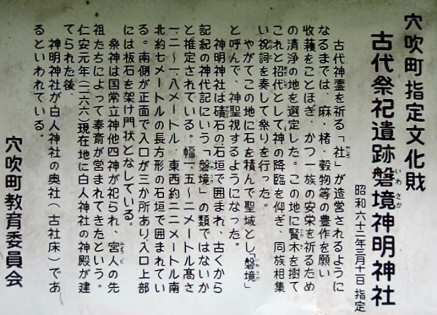 穴吹町指定文化財
古代祭祀遺跡磐境神明神社
いわさか
昭和六十三年三月十日 指定
古代神霊を祈る「社」が造営されるように
なるまでは、麻・楮・穀物等の豊作を願い
収穫をことほぎ、かつ一族の安栄を祈るため
の清浄の地を選定した。この地に賢木を樹て
これと招代として神の降臨を仰ぎ、同族相集
い祝詞を奏して祭りを行った。
やがてこの地に石を積んで聖域とし「磐境」
と呼んで、神聖視するようになった。
神明神社は磊石の石垣で囲まれ、古くから
記紀の神代記にいう「磐境」の類ではないか
と推定されている。幅一・五〜二メートル高さ
一・二〜一・八メートル 東西約二二メートル南
北約七メートルの長方形の石垣で囲まれてい
る。南側が正面で入口が三か所あり、入口上部
には板石を架け門状となしている。
祭神は国常立神他四神が祀られ、宮人の先
祖たちによって奉斎が営まれてきたという。
仁安元年二六六現在地に白人神社の神殿が建
てられた後
神明神社が白人神社の奥社(古社床)であ
るといわれている。
穴吹町教育委員会